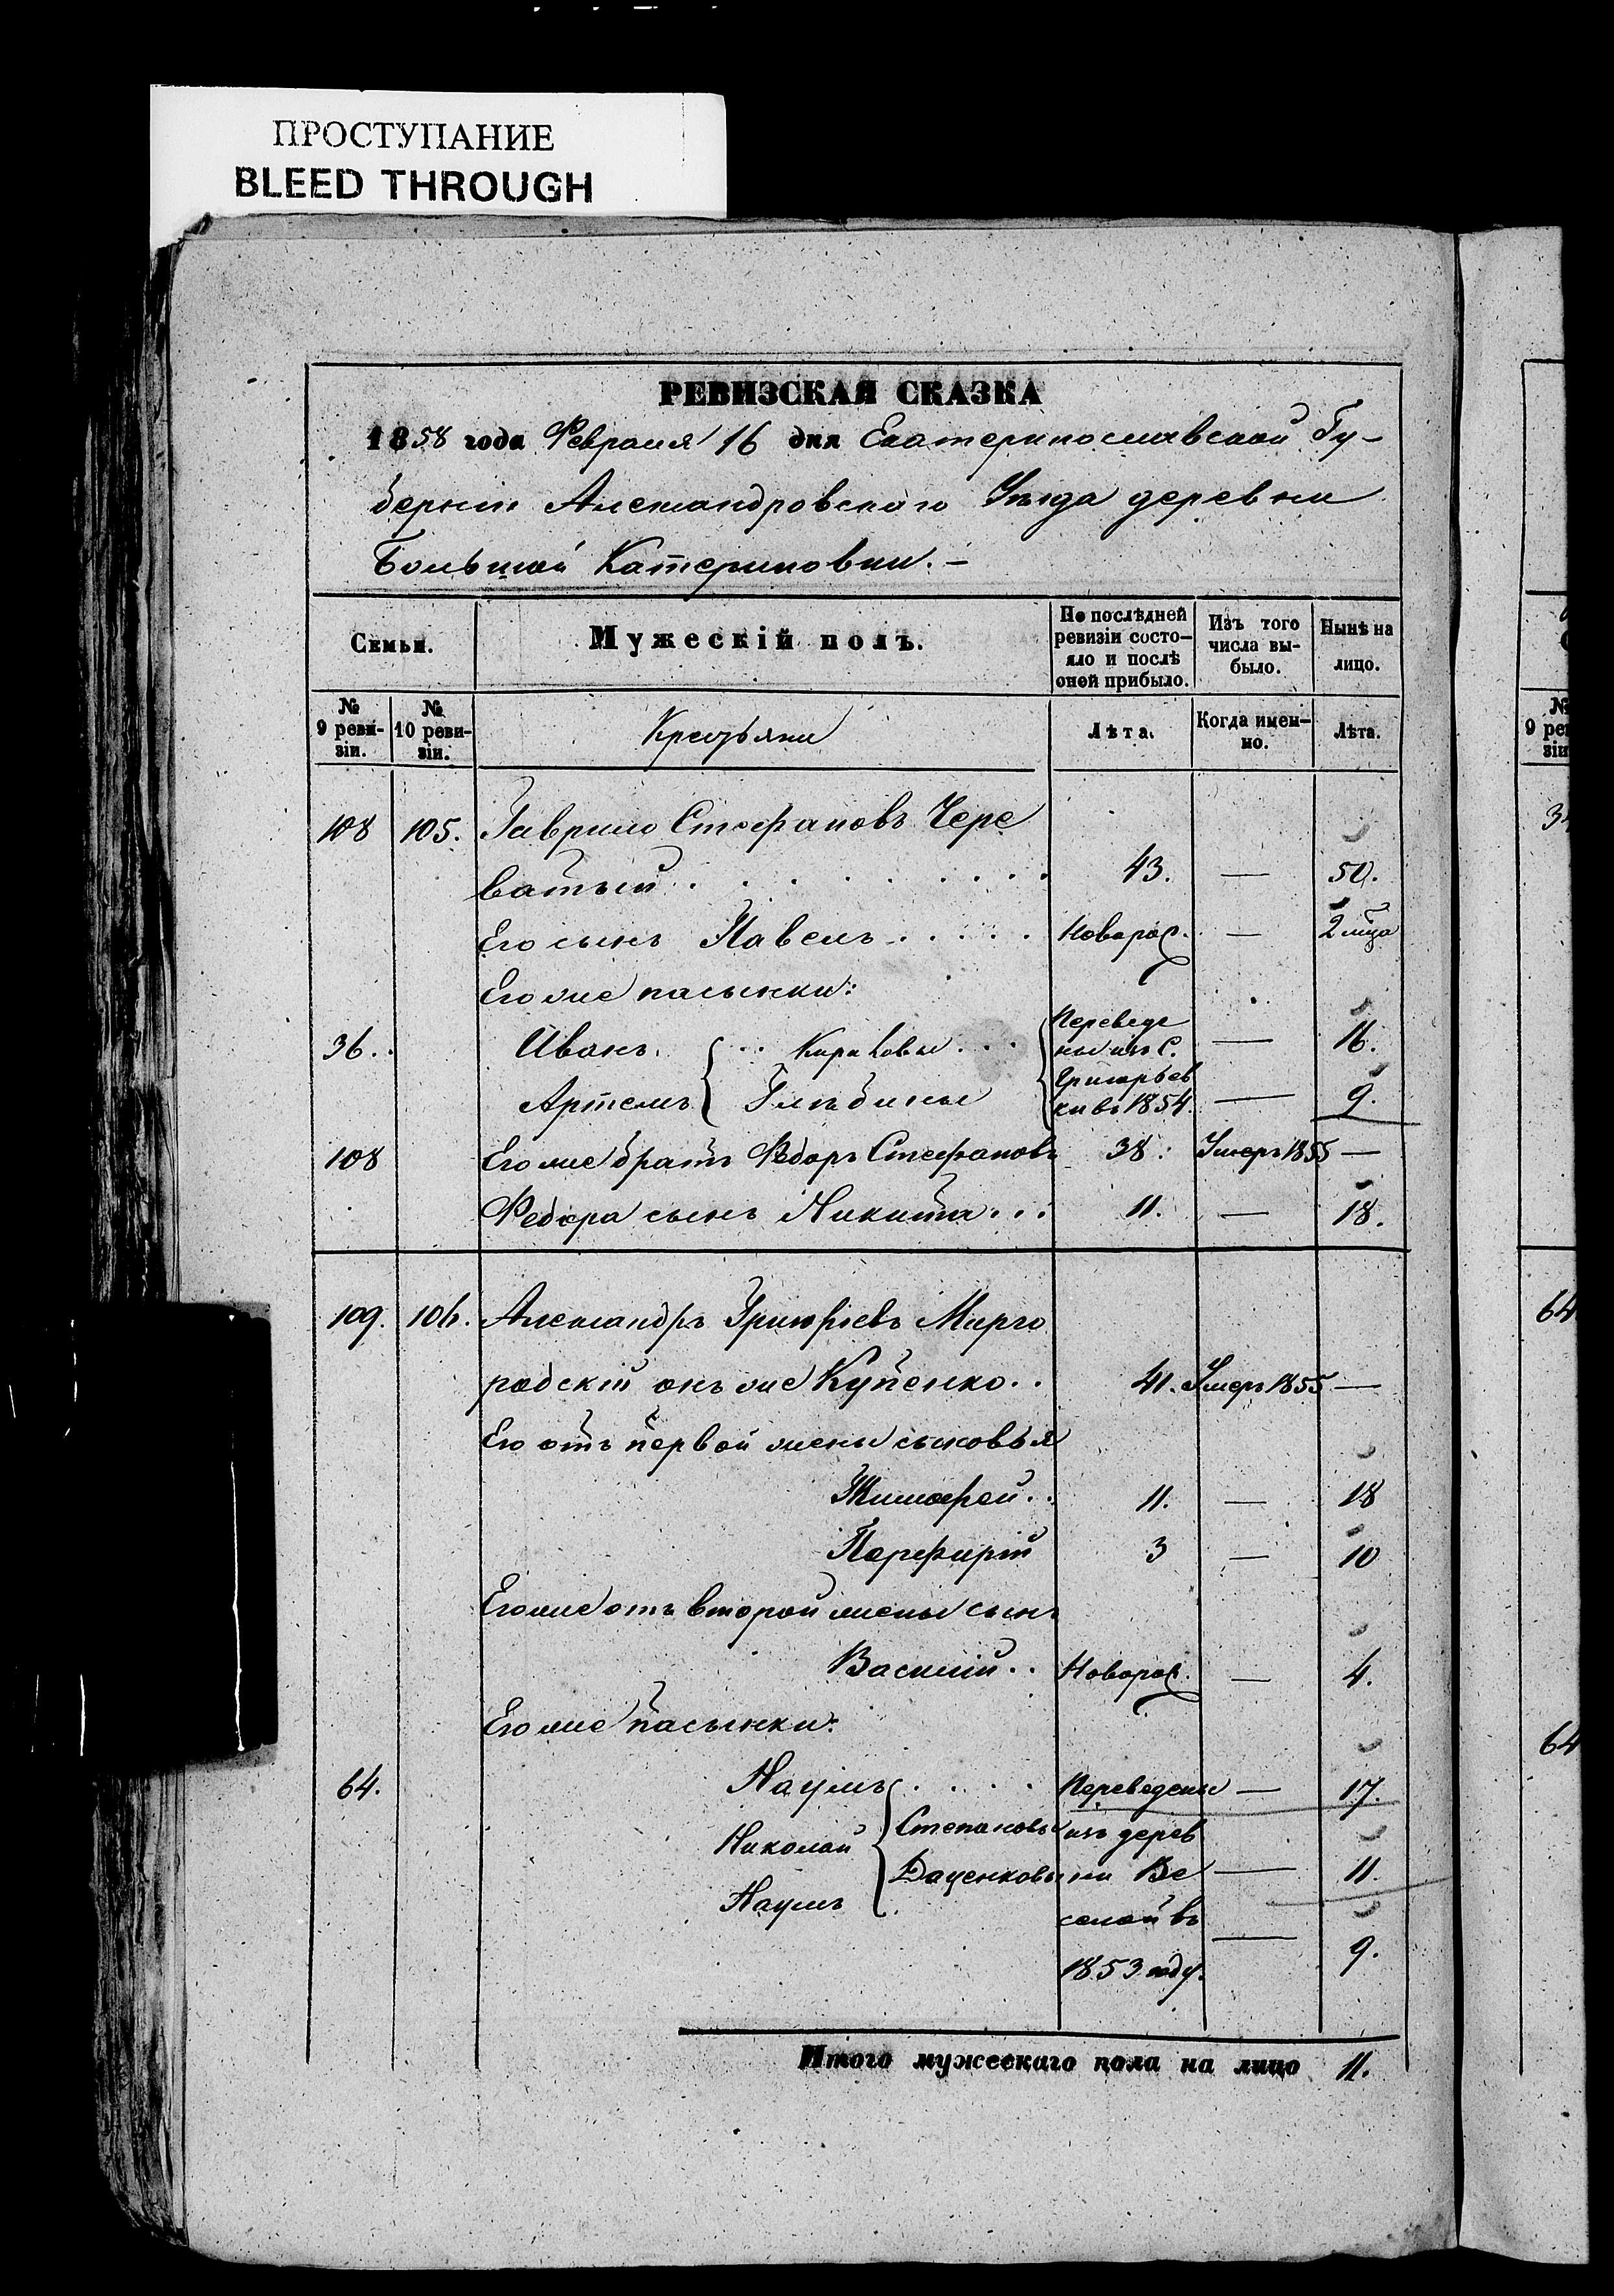 ПРОСТУПАНИЕ
BLEED THROUGH
РЕВИЗСКАЯ СКАЗКА
1858 года Февраля 16 дня Екатеринославской Гу-
берніи Александровскаго Уѣзда деревни
Большой Катериновки.-
Семьи. Мужескій полъ. По послѣдней ревизіи состо-яло и послѣ оной прибыло. Изъ того числа вы-было. Нынѣ на лицо.
№ 9 реви-зіи. № 10 реви-зіи. Крестьяни Лѣта. Когда имен-но. Лѣта.
108 105. Гаврило Стефановъ Чере
ватый 43. — 50.
Его сынъ Павелъ Новорож. — 2 мца
Его же пасынки:
36. Иванъ Переведе — 16.
ны изъ С.
Артемъ Глѣбины Григорьев — 9.
ки въ 1854.
108 Его же братъ Федоръ Стефановъ 38. Умеръ 1855 —
Федора сынъ Никита 11. — 18.
109. 106. Александръ Григорьевъ Мирго
родскій онъ же Купенко 41. Умеръ 1855 —
Его отъ первой жены сыновья
Тимофей 11. — 18
Порфирій 3 — 10
Его же отъ второй жены сынъ
Василій Новорож. — 4.
Его же пасынки:
64. Наумъ Переведены — 17.
Николай Степановы изъ дерев
Даценковы ни Ве — 11.
Наумъ селой въ
1853 году. — 9.
Итого мужескаго пола на лицо 11.
34
64
64